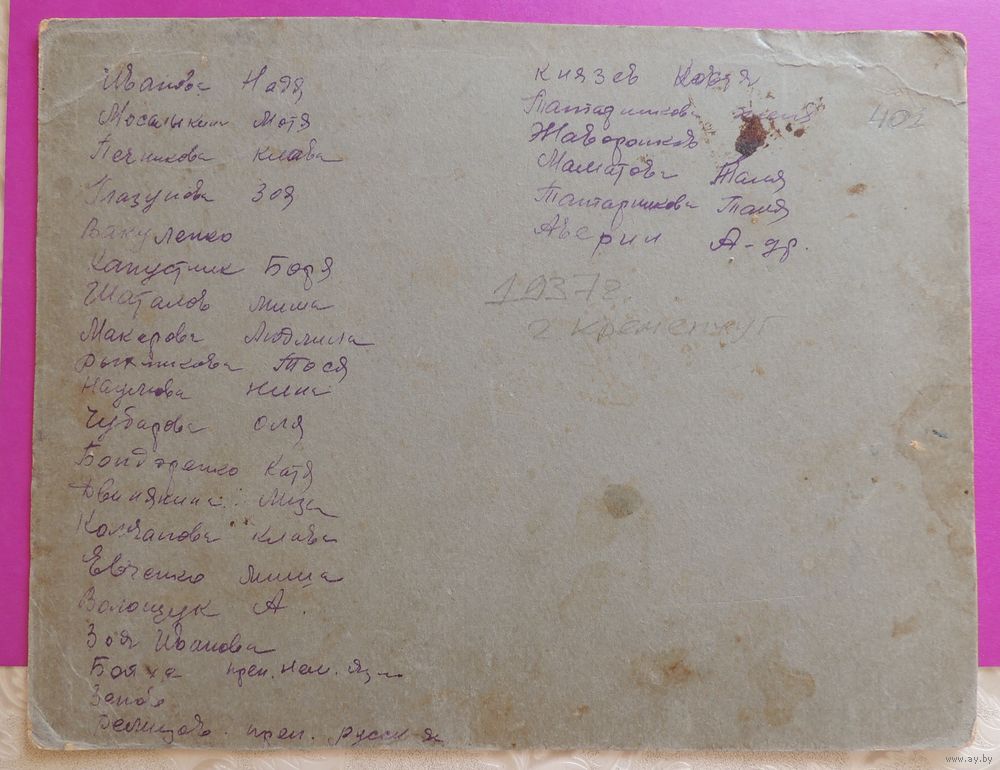 Иванова Надя
Мосалыкин Мотя
Печникова Клава
Глазунова Зоя
Вакуленко
Капустник Боря
Шаталов Миша
Макарова Людмила
Рыжникова Тося
Наумова Нина
Чубарова Оля
Бондаренко Катя
Двинянина Муза
Колчанова Клава
Евченко Миша
Волощук А.
Зоя Иванова
Бояха преп. нем. яз
преп. русск я
Князев
Жаворонков
Маматова Таля
Татарникова Таня
Аверин А-др.
402
1937г.
г Кременчуг
www.ay.by